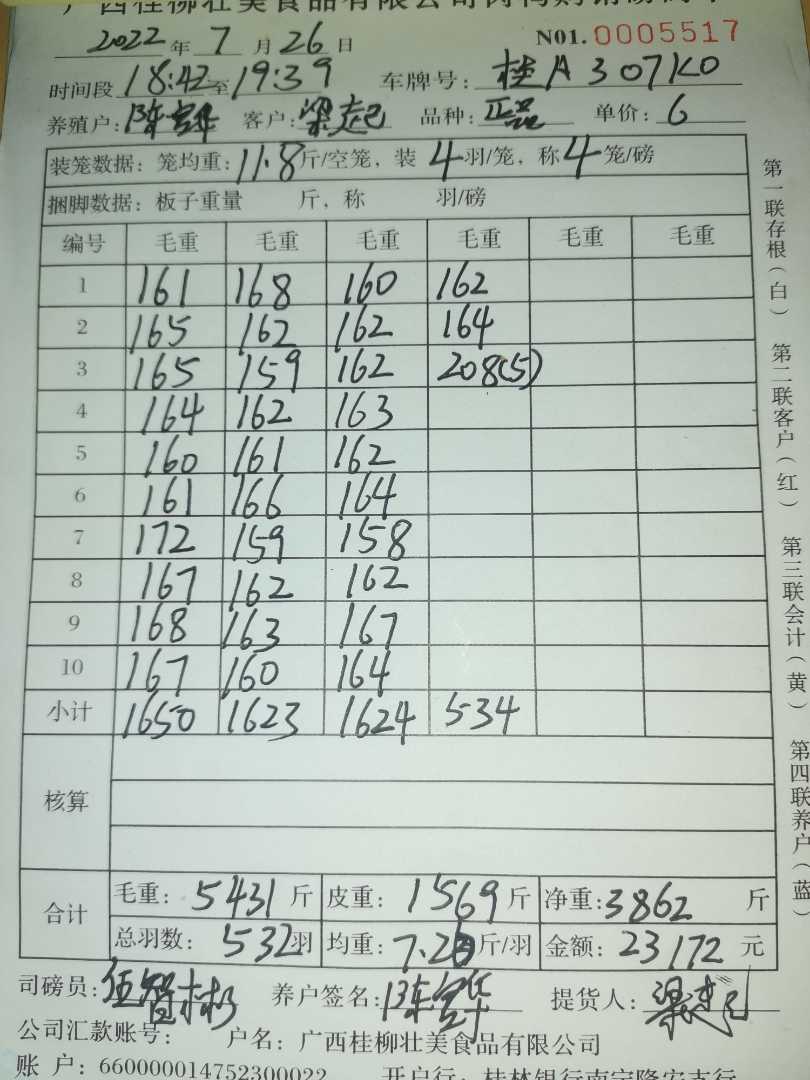 广西桂柳壮美食品有限公司肉鸭购销磅码单
2022 年 7 月 26 日 N01. 0005517
时间段 18:42 至 19:39 车牌号: 桂A307K0
养殖户: 陈宝华 客户: 梁起 品种: 正品 单价: 6
装笼数据: 笼均重: 11.8 斤/空笼, 装 4 羽/笼, 称 4 笼/磅
捆脚数据: 板子重量 斤, 称 羽/磅
编号 毛重 毛重 毛重 毛重 毛重 毛重
1 161 168 160 162
2 165 162 162 164
3 165 159 162 208(5)
4 164 162 163
5 160 161 162
6 161 166 164
7 172 159 158
8 167 162 162
9 168 163 167
10 167 160 164
小计 1650 1623 1624 534
核算
合计 毛重: 5431 斤 皮重: 1569 斤 净重: 3862 斤
总羽数: 532 羽 均重: 7.26 斤/羽 金额: 23172 元
司磅员: 养户签名: 陈宝华 提货人: 梁起
公司汇款账号: 户名: 广西桂柳壮美食品有限公司
账 户: 660000014752300022 开户行: 桂林银行南宁隆安支行
第一联存根(白) 第二联客户(红) 第三联会计(黄) 第四联养户(蓝)